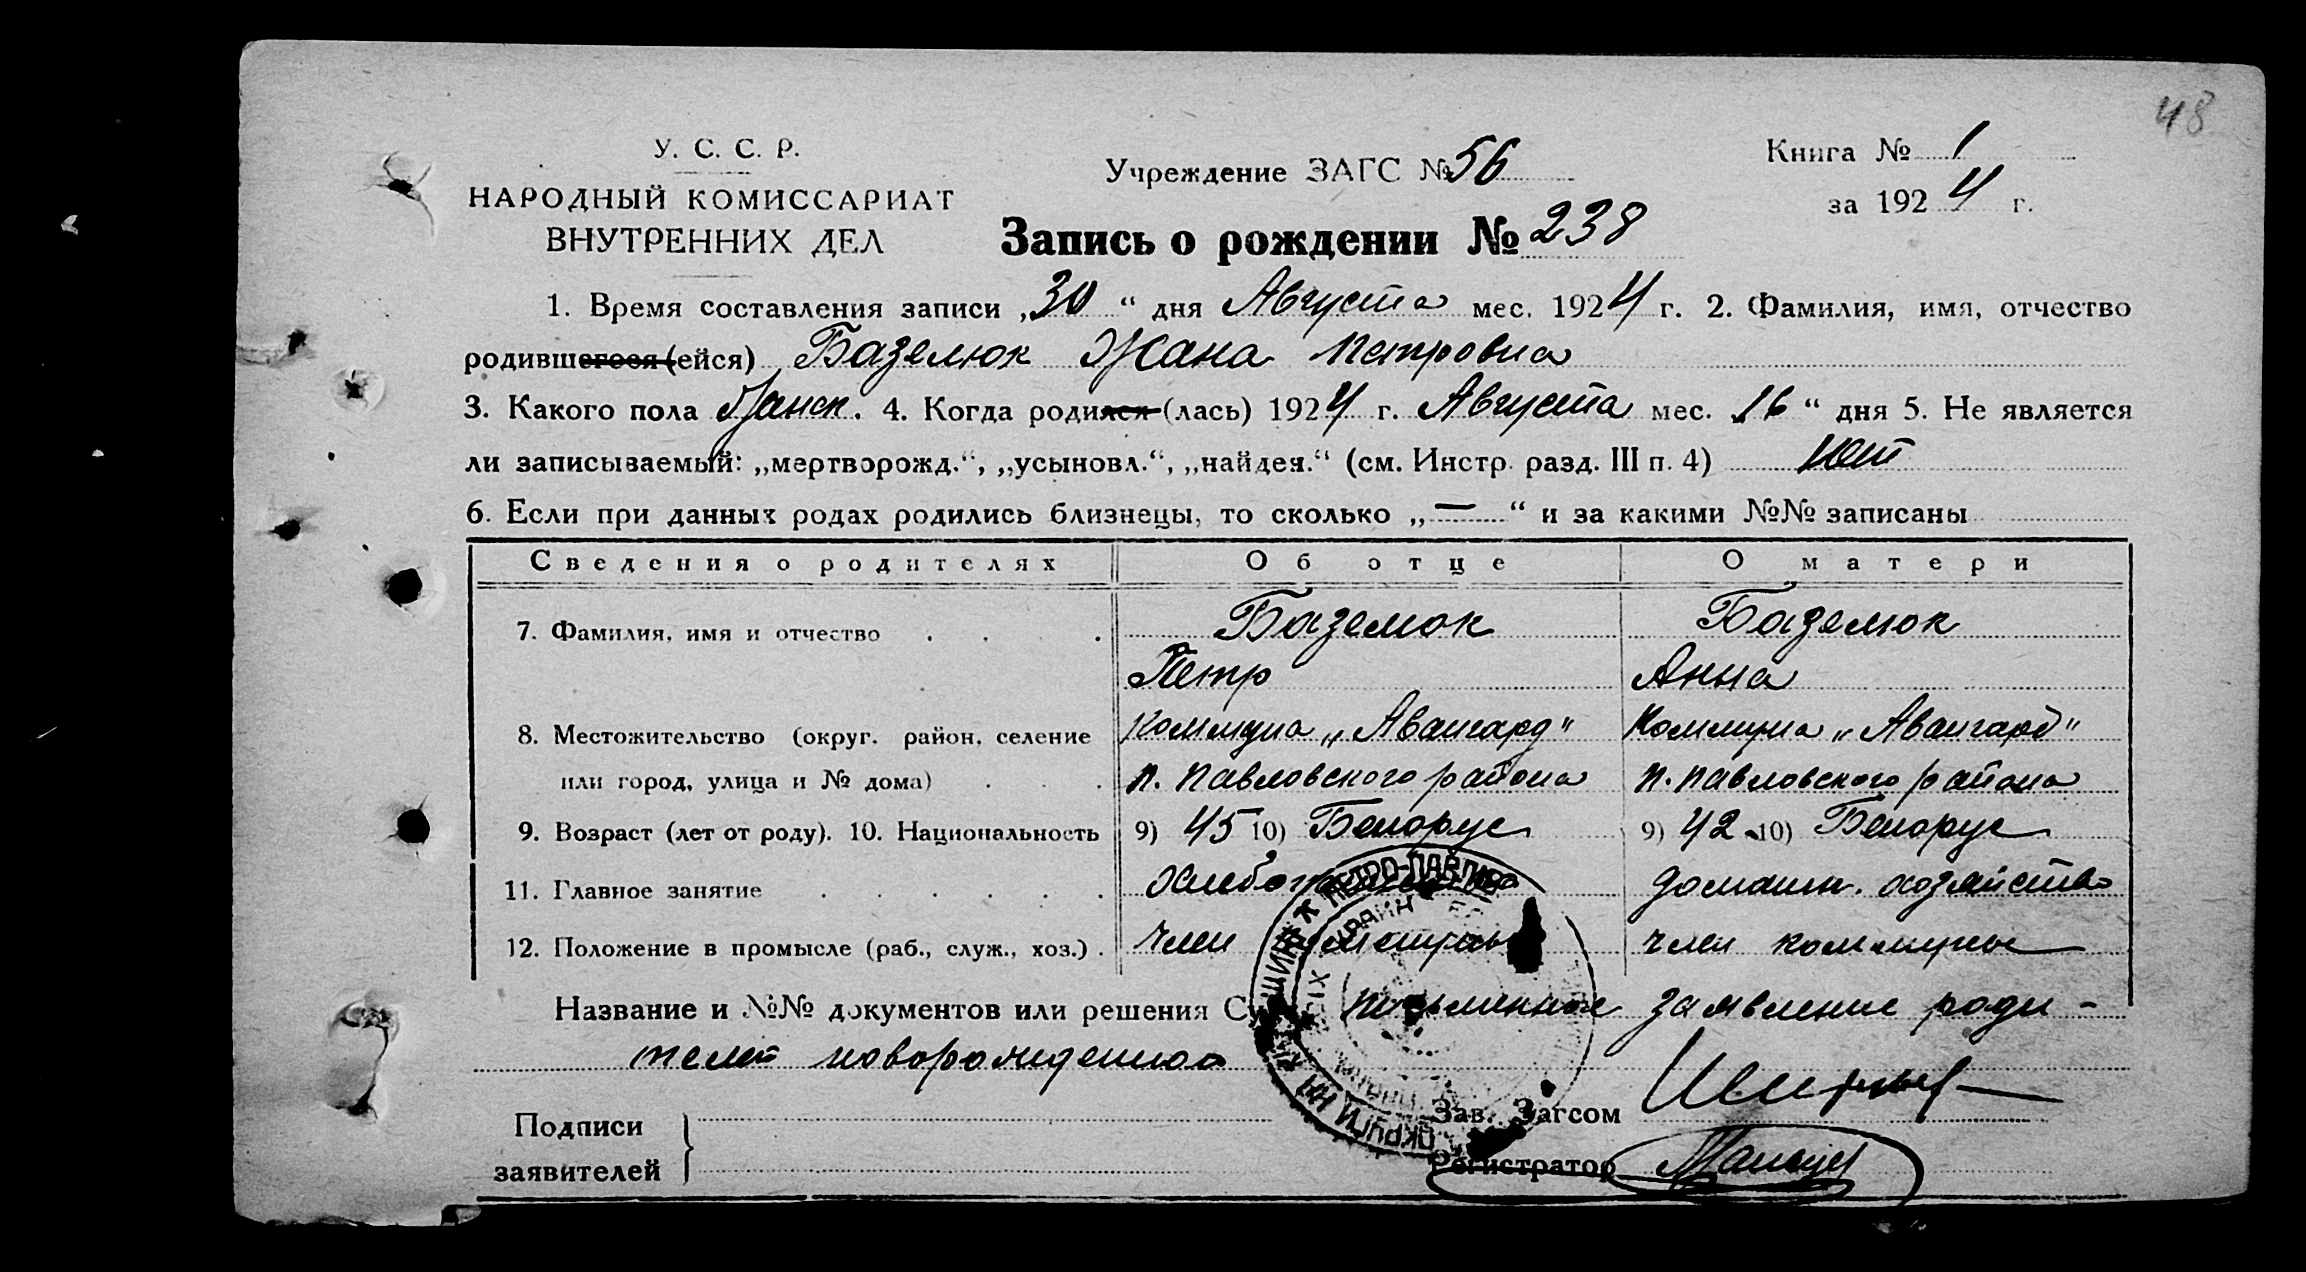 48
У. С. С. Р.
НАРОДНЫЙ КОМИССАРИАТ
ВНУТРЕННИХ ДЕЛ
Учреждение ЗАГС № 56
Книга № 1
за 1924 г.
Запись о рождении № 238
1. Время составления записи „30“ дня Августа мес. 1924 г. 2. Фамилия, имя, отчество
родившегося (ейся) Базелюк Жана Петровна
3. Какого пола женск. 4. Когда родился (лась) 1924 г. Августа мес. 16“ дня 5. Не является
ли записываемый: „мертворожд.“, „усыновл.“, „найден.“ (см. Инстр. разд. III п. 4) нет
6. Если при данных родах родились близнецы, то сколько „—“ и за какими №№ записаны
Сведения о родителях Об отце О матери
7. Фамилия, имя и отчество Базелюк Базелюк
Петр Анна
8. Местожительство (округ. район, селение Коммуна „Авангард“ Коммуна „Авангард“
или город, улица и № дома) п. павловского района п. павловского района
9. Возраст (лет от роду). 10. Национальность 9) 45 10) Белорус 9) 42 10) Белорус
11. Главное занятие домашн. хозяйство
12. Положение в промысле (раб., служ., хоз.) член коммуны член коммуны
Название и №№ документов или решения письменное заявление роди-
телей новорожденной
Подписи
заявителей
Зав. Загсом
Регистратор